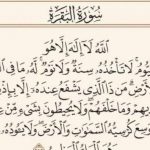 سُورَةُ البَقَرَةِ
اللَّهُ لَا إِلَٰهَ إِلَّا هُوَ
لَا تَأْخُذُهُ سِنَةٌ وَلَا نَوْمٌ لَّهُ مَا فِي
مَن ذَا الَّذِي يَشْفَعُ عِندَهُ إِلَّا
وَمَا خَلْفَهُمْ وَلَا يُحِيطُونَ بِشَيْءٍ مِّنْ
وَسِعَ كُرْسِيُّهُ السَّمَٰوَٰتِ وَالْأَرْضَ وَلَا يَئُودُهُ